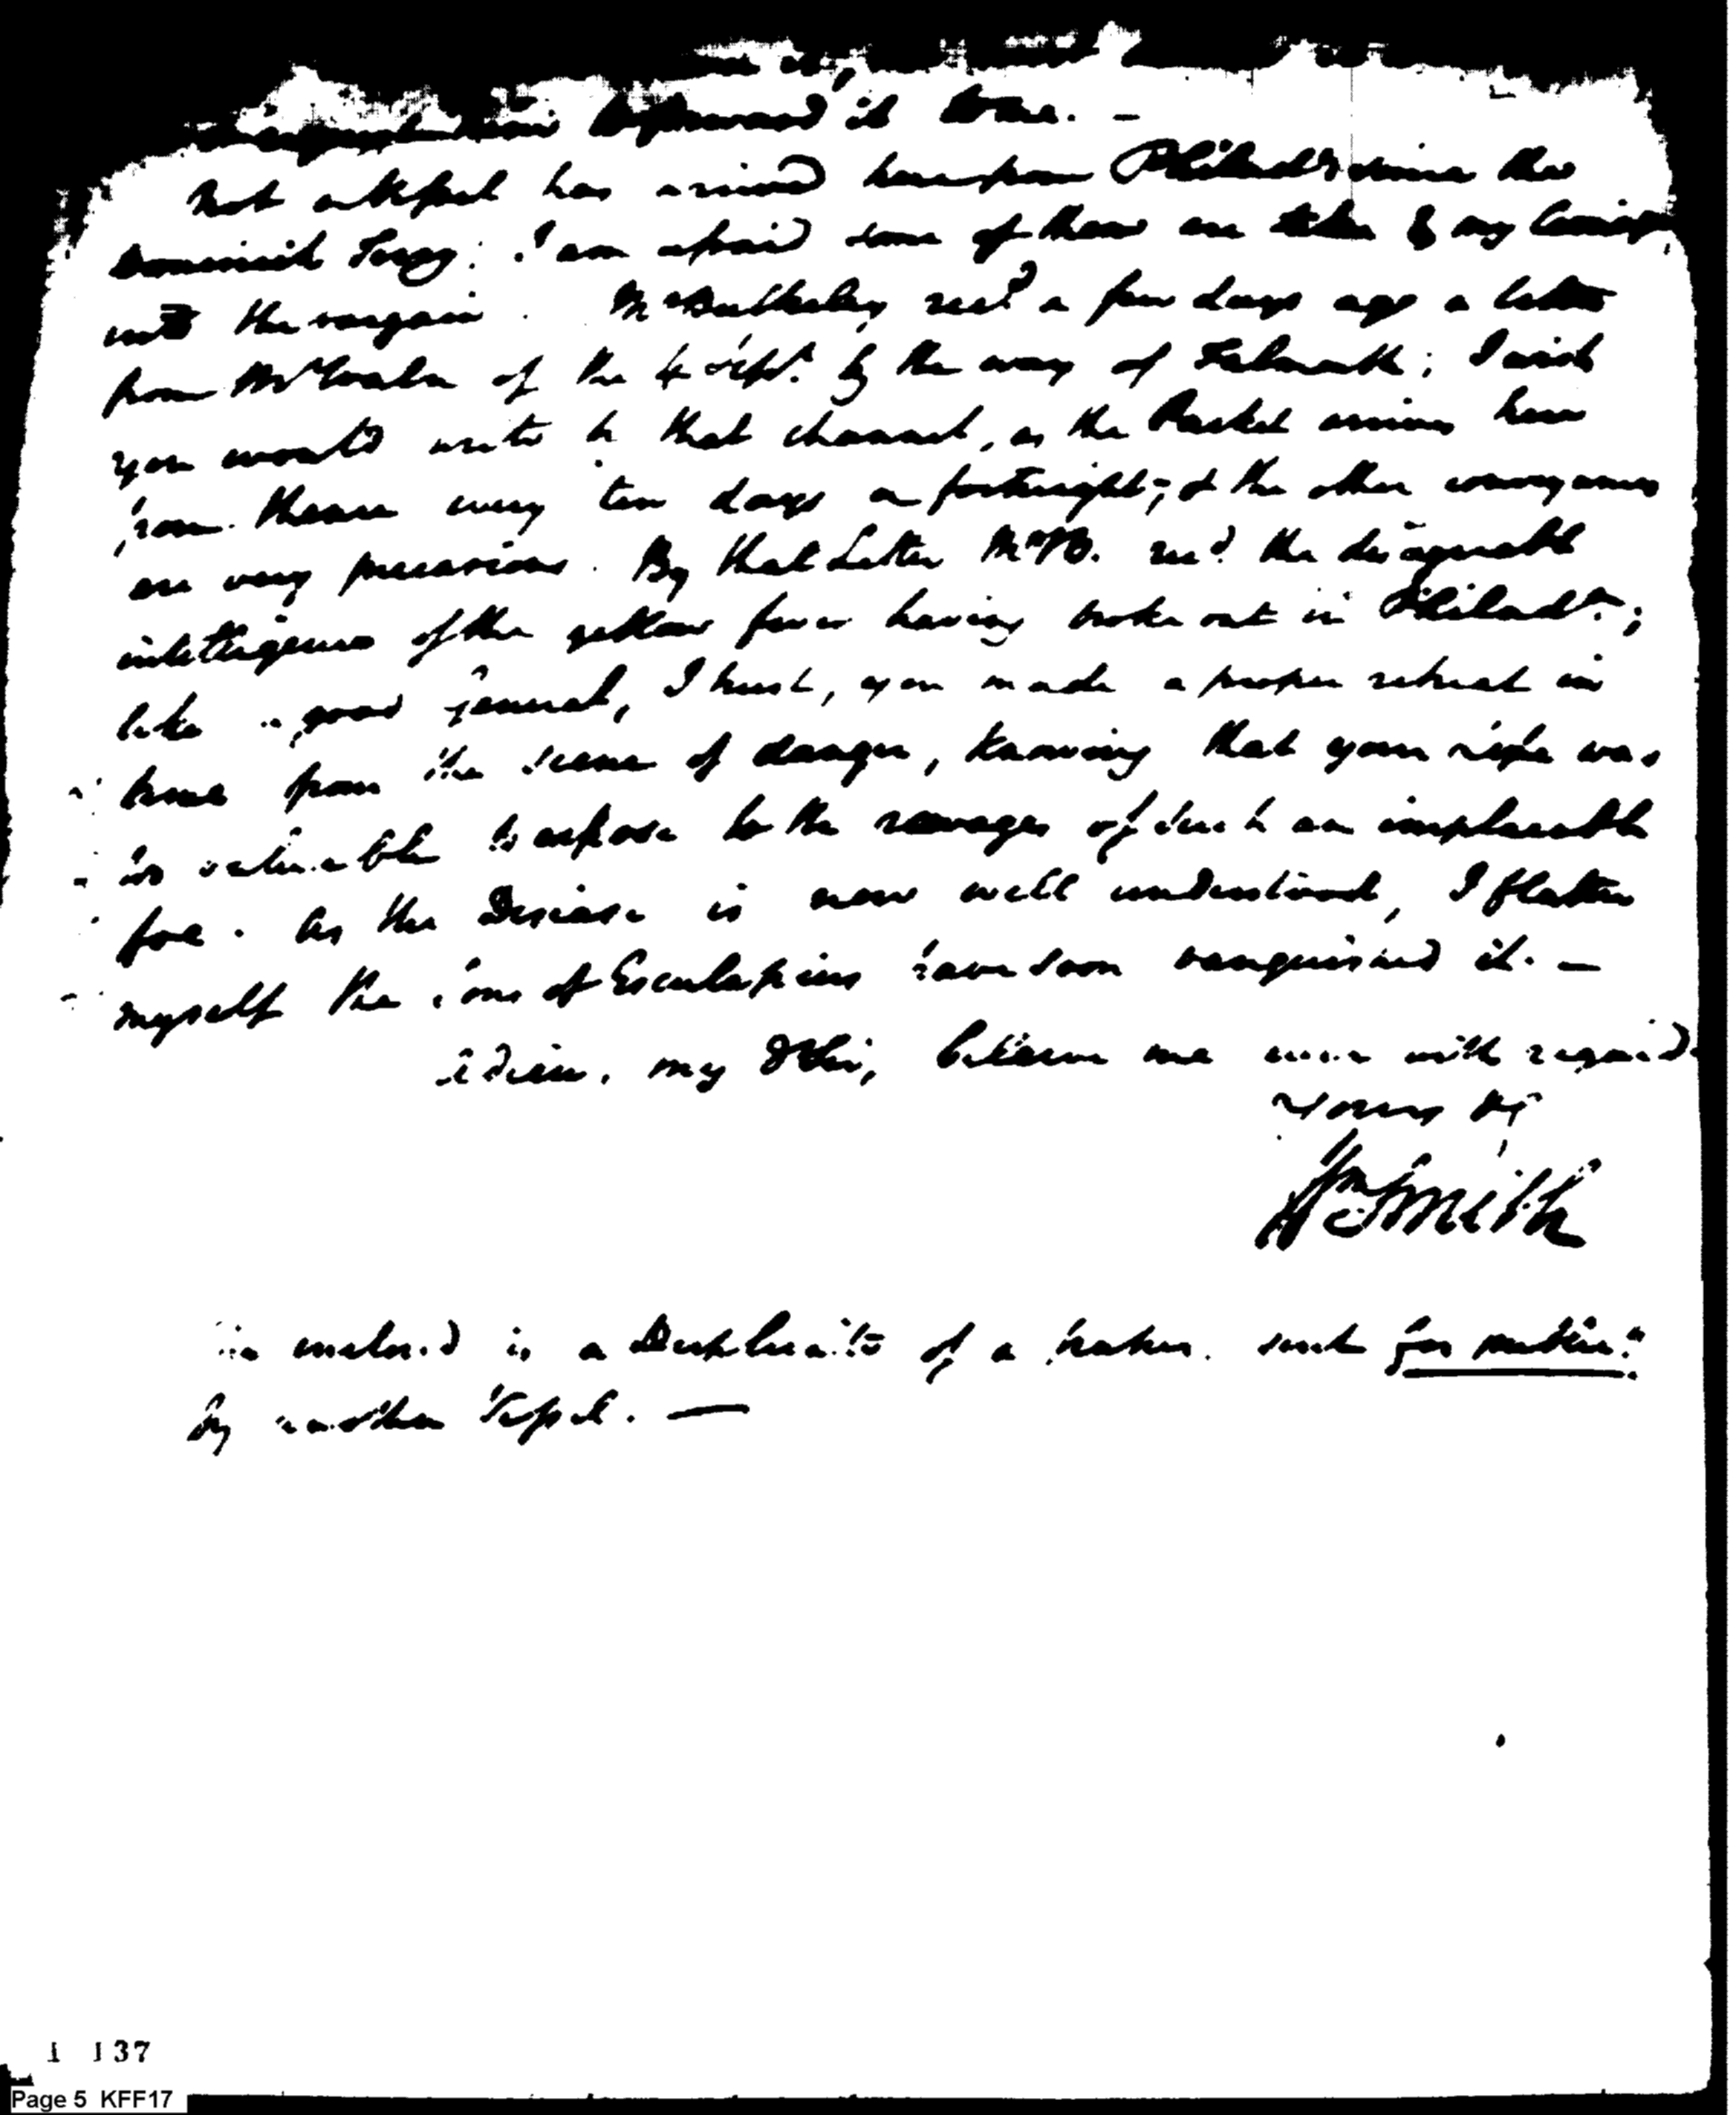 it true. —
Not a Vessel has arrived here from Philad.ᵃ since the
Dominick Terry: I am afraid some of them are taken & my
with the rogues. Mr recd a few days ago a letter
from Mr of the 6 Sept. by the way of Falmouth; I wish
you would write by that channel, as the Packet arrives here
from thence every ten days or fortnight; & the other conveyances
are very precarious. By that Letter Mr B. recd the disagreeable
intelligence of the yellow fever having broke out in Philad.ᵃ;
like a good general, I trust, you made a proper retreat in
time from the scene of danger, knowing that your life was
too valuable to expose to the ravages of such an implacable
foe. As the Disease is now well understood, I flatter
myself the sons of Esculapius have soon vanquished it. —
Adieu, my Dr Sir; believe me ever with regard
Yours &c
Smith
The enclosed is a Duplicate of a
by another Vessel. —
1 137
Page 5 KFF17